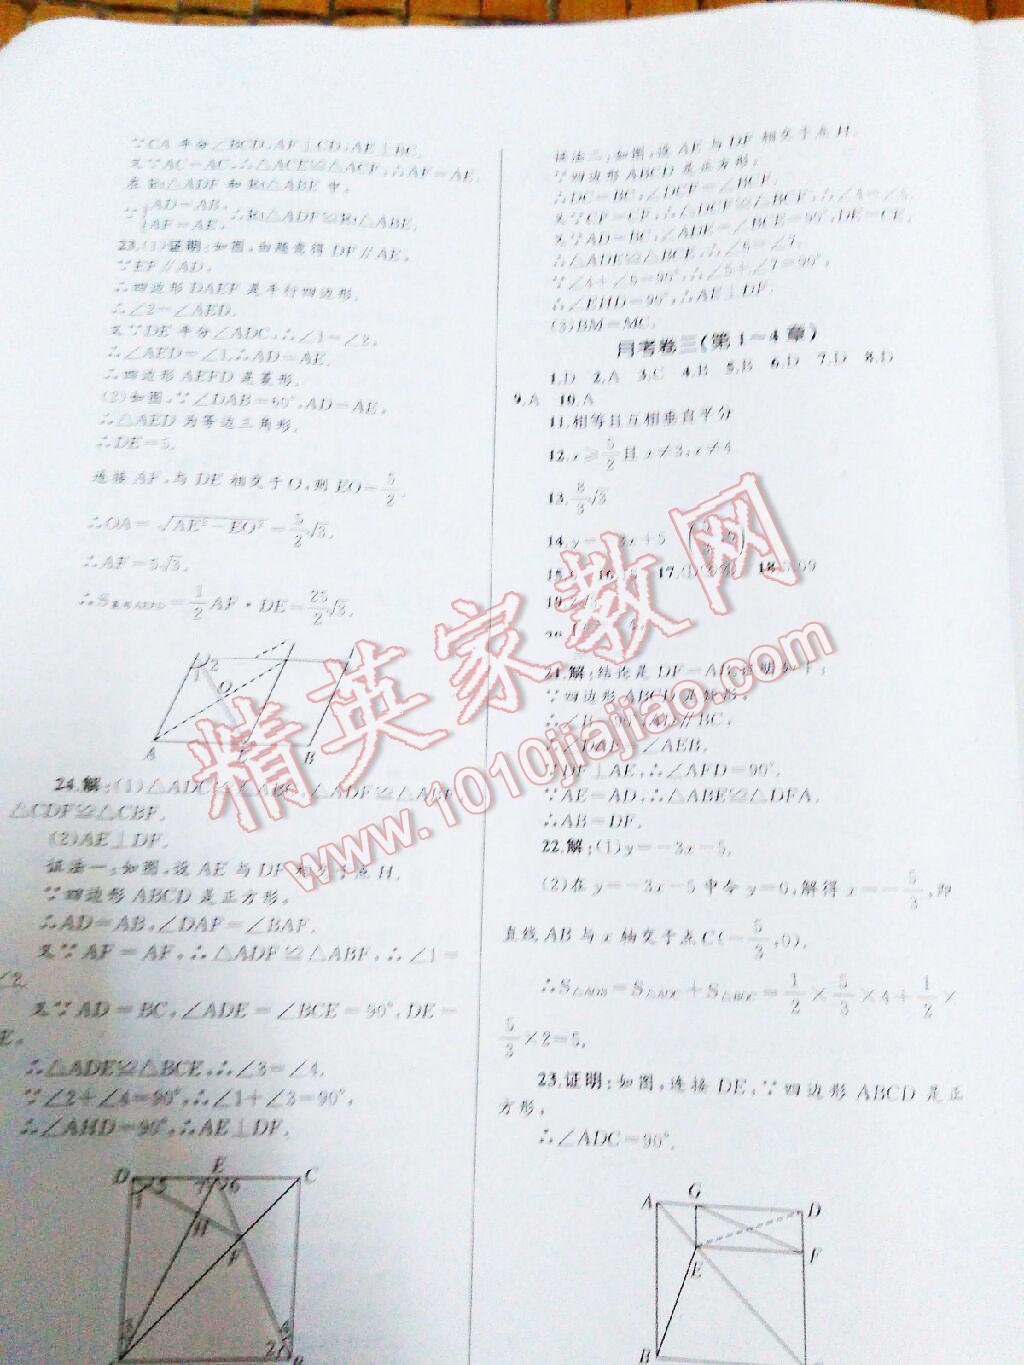 ∵CA平分∠BCD,AF⊥CD,AE⊥BC,
又∵AC=AC,∴△ACE≌△ACF,∴AF=AE,
在Rt△ADF和Rt△ABE中,
∵{AD=AB, AF=AE, ∴Rt△ADF≌Rt△ABE.
23.(1)证明:如图,由题意得DF∥AE,
∵EF∥AD,
∴四边形DAEF是平行四边形,
∴∠2=∠AED.
又∵DE平分∠ADC,∴∠1=∠2,
∴∠AED=∠1,∴AD=AE,
∴四边形AEFD是菱形.
(2)如图,∵∠DAB=60°,AD=AE,
∴△AED为等边三角形,
∴DE=5,
连接AF,与DE相交于O,则EO=5/2,
∴OA=√(AE²-EO²)=5/2√3,
∴AF=5√3,
∴S菱形AEFD=1/2AF·DE=25/2√3.
2
O
A
B
24.解:(1)△ADC≌△ABC,△ADF≌△ABF,
△CDF≌△CBF.
(2)AE⊥DF.
证法一:如图,设AE与DF相交于点H.
∵四边形ABCD是正方形,
∴AD=AB,∠DAF=∠BAF.
又∵AF=AF,∴△ADF≌△ABF,∴∠1=
∠2.
又∵AD=BC,∠ADE=∠BCE=90°,DE=
E,
∴△ADE≌△BCE,∴∠3=∠4.
∵∠2+∠4=90°,∴∠1+∠3=90°,
∴∠AHD=90°,∴AE⊥DF.
D E C
1 5 7 6
H F
3 2 4
证法二:如图,设AE与DF相交于点H.
∵四边形ABCD是正方形,
∴DC=BC,∠DCF=∠BCF,
又∵CF=CF,∴△DCF≌△BCF,∴∠4=∠5,
又∵AD=BC,∠ADE=∠BCE=90°,DE=CE,
∴△ADE≌△BCE,∴∠6=∠7,
∵∠4+∠6=90°,∴∠5+∠7=90°,
∴∠EHD=90°,∴AE⊥DF.
(3)BM=MC.
月考卷三(第1~4章)
1.D 2.A 3.C 4.B 5.B 6.D 7.D 8.D
9.A 10.A
11.相等且互相垂直平分
12.x≥5/2且x≠3,x≠4
13.8/3√3
14.y= 3x+5
15. 16. 17.①②④ 18. 09
19.
20.
21.解:结论是DF=AB,证明如下:
∵四边形ABCD是矩形,
∴∠B=90°,AD∥BC,
∴∠DAE=∠AEB.
∵DF⊥AE,∴∠AFD=90°.
∵AE=AD,∴△ABE≌△DFA,
∴AB=DF.
22.解:(1)y=-3x-5,
(2)在y=-3x-5中令y=0,解得x=-5/3,即
直线AB与x轴交于点C(-5/3,0),
∴S△AOB=S△AOC+S△BOC=1/2×5/3×4+1/2×
5/3×2=5.
23.证明:如图,连接DE,∵四边形ABCD是正
方形,
∴∠ADC=90°.
A G D
E F
B
精英家教网
www.1010jiajiao.com